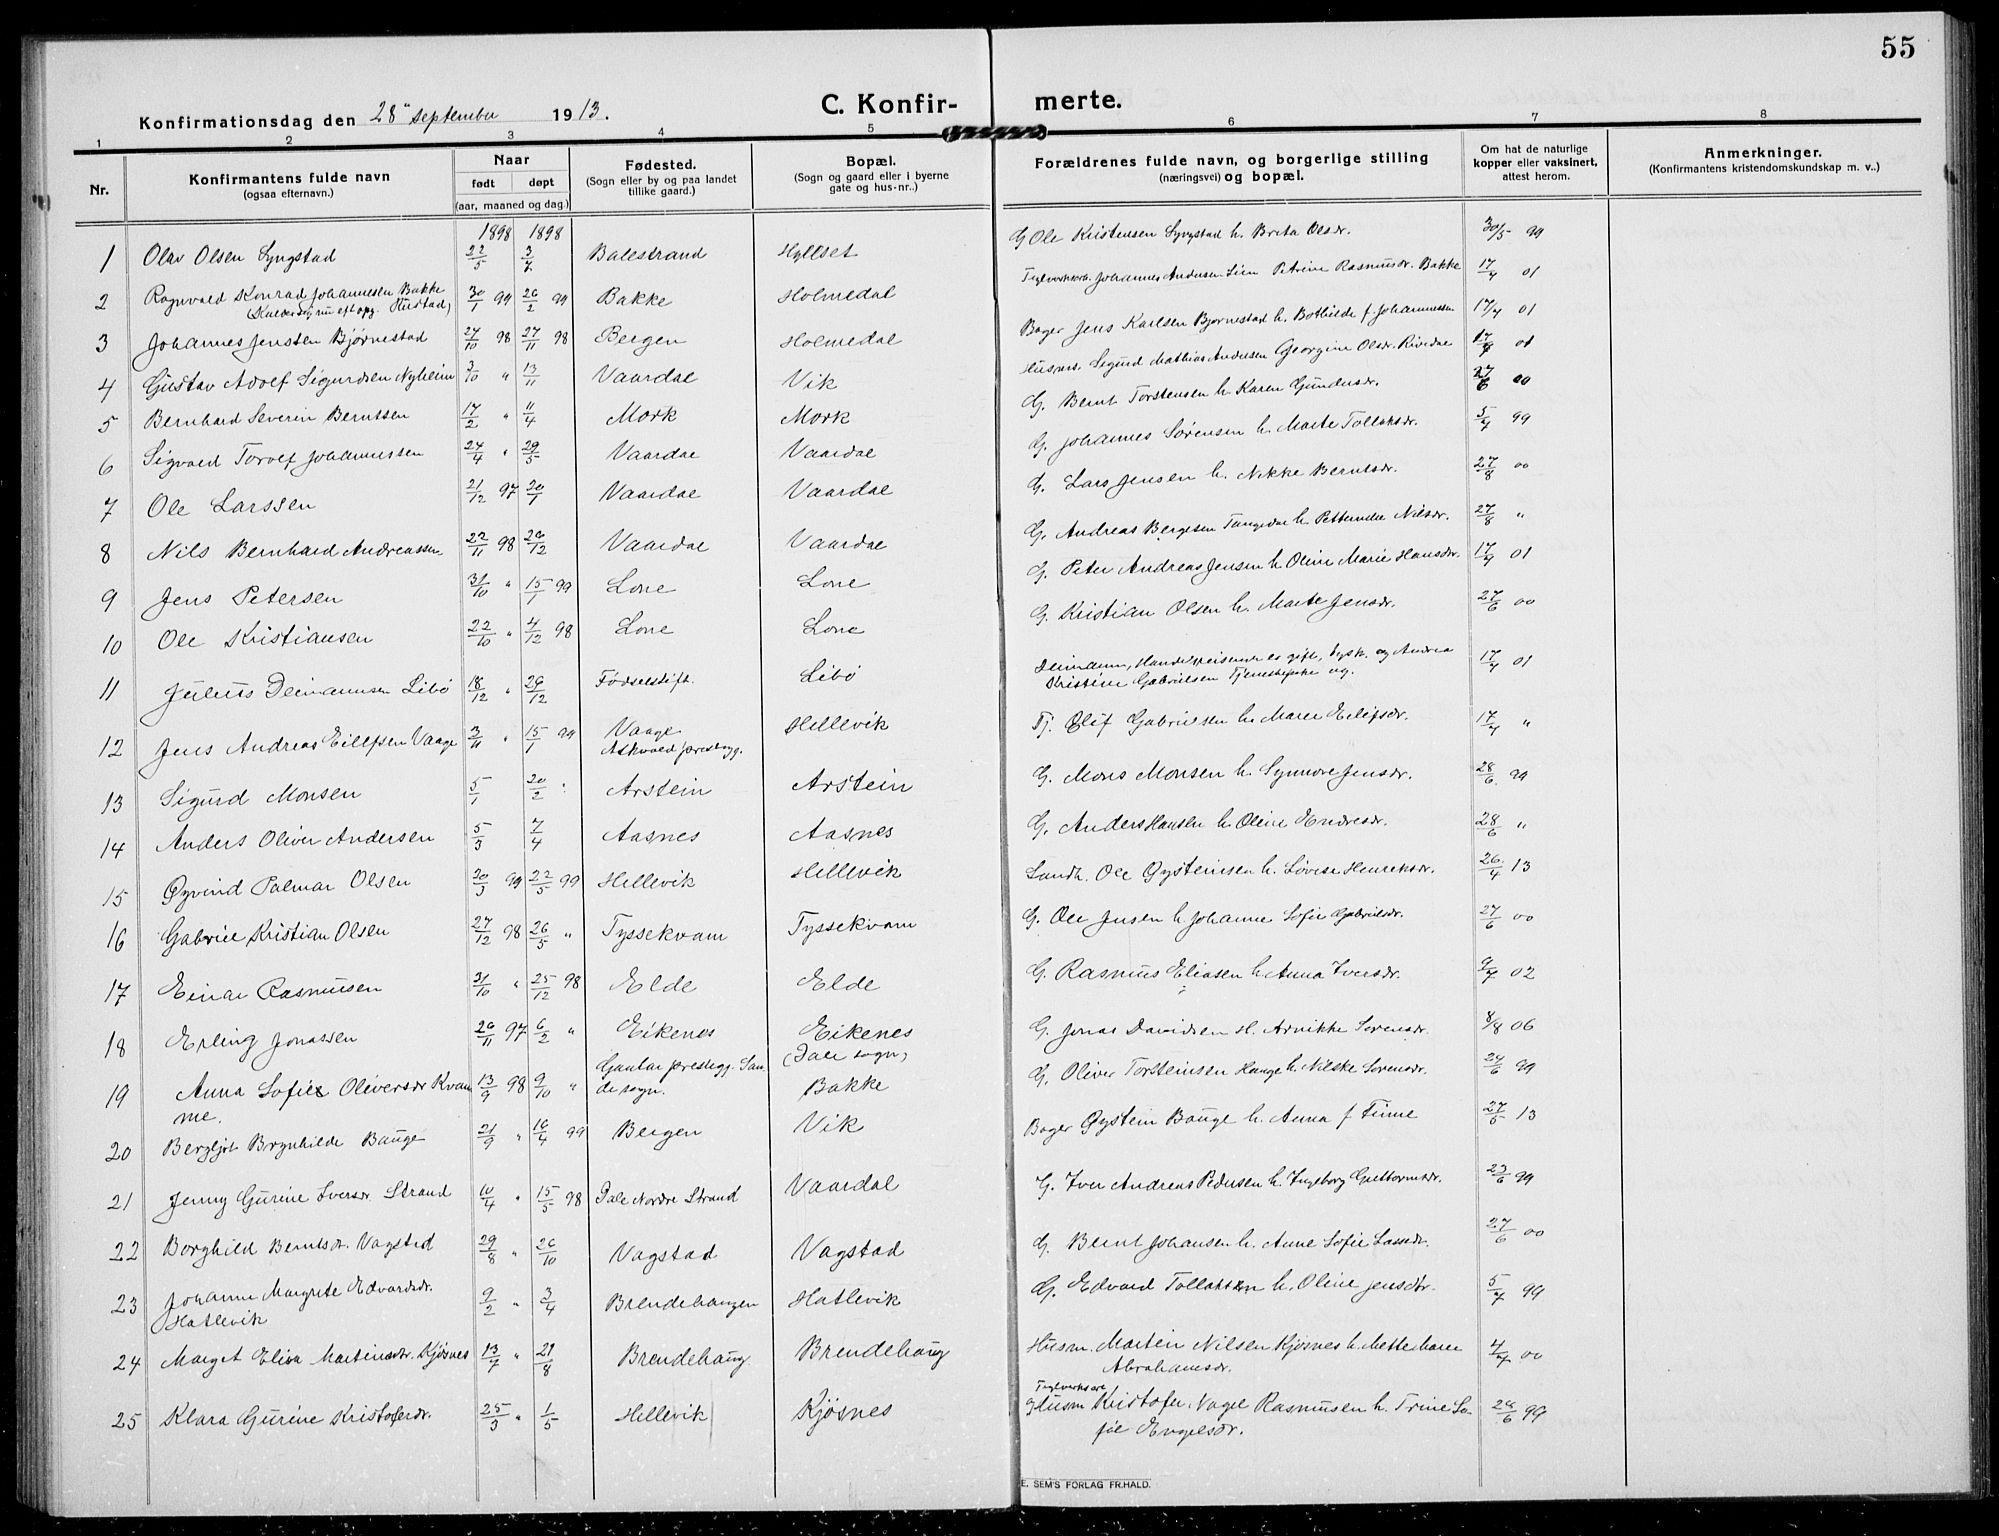 55
Konfirmationsdag den 28 september 1913.
C. Konfir- merte.
1 2 3 4 5 6 7 8
Nr. Konfirmantens fulde navn (ogsaa efternavn.) Naar født døpt (aar, maaned og dag.) Fødested. (Sogn eller by og paa landet tillike gaard.) Bopæl. (Sogn og gaard eller i byerne gate og hus-nr.,) Forældrenes fulde navn, og borgerlige stilling (næringsvei) og bopæl. Om hat de naturlige kopper eller vaksinert, attest herom. Anmerkninger. (Konfirmantens kristendomskundskap m. v..)
1898 1898
1 Olav Olsen Lyngstad 22/5 3/7 Balestrand Hyllset G Ole Kristensen Lyngstad h. Brita Olsdr. 30/5 99
2 Ragnvald Konrad Johannesen Bakke 30/1 99 26/2 99 Bakke Holmedal Teglverksarb. Johannes Andersen Lien Petrine Rasmusdr. Bakke 17/4 01
3 Johannes Jenssen Bjørnestad 27/10 98 27/11 98 Bergen Holmedal Bager Jens Karlsen Bjørnestad h. Bothilde f. Johannessen 17/4 01
4 Gustav Adolf Sigurdsen Nyheim 3/10 " 13/11 Vaardal Vik Husm. Sigurd Mathias Andersen Georgine Olsdr. Rivedal 17/4 01
5 Bernhard Severin Berntsen 17/2 " 11/4 Mork Mork G. Bernt Torstensen h. Karen Gundersdr. 27/6 00
6 Sigvald Torolf Johannessen 24/4 " 29/5 Vaardal Vaardal G. Johannes Sørensen h. Marte Tollaksdr. 5/7 99
7 Ole Larssen 21/12 97 20/1 Vaardal Vaardal G. Lars Jensen h. Nikke Berntsdr. 27/8 00
8 Nils Bernhard Andreassen 22/11 98 26/12 Vaardal Vaardal G. Andreas Bergesen Tangedal h. Petternille Nilsdr. 27/8 "
9 Jens Petersen 31/10 " 15/1 99 Lone Lone G. Peter Andreas Jensen h. Oline Marie Hansdr. 17/4 01
10 Ole Kristiansen 22/10 " 4/12 98 Lone Lone G. Kristian Olsen h. Marte Jensdr. 27/6 00
11 Julius Deimannsen Libø 18/12 " 29/12 Fødselstift. Libø Deimann, Handelsreisende es gift, tysk. og Andrea Kristine Gabrielsen Tjenestepike ug. 17/4 01
12 Jens Andreas Eilefsen Vaage 3/11 " 15/1 99 Vaage Askvold prestegj. Hellevik Tj. Elif Gabrielsen h. Maren Eilifsdr. 17/4 "
13 Sigurd Monsen 5/1 20/2 " Arstein Arstein G. Mons Monsen h. Synnove Jensdr. 28/6 99
14 Anders Oliver Andersen 5/3 7/4 Aasnes Aasnes G. Anders Hansen h. Oline Endresdr. 28/6 "
15 Øyvind Palmar Olsen 20/3 99 22/5 99 Hellevik Hellevik Landh. Ole Øysteinsen h. Lovise Henriksdr. 26/4 13
16 Gabriel Kristian Olsen 27/12 98 26/5 " Tyssekvam Tyssekvam G. Ole Jensen h. Johanne Sofie Gabrielsdr. 27/6 00
17 Einar Rasmusen 31/10 " 25/12 98 Elde Elde G. Rasmus Eliasen h. Anna Iversdr. 9/7 02
18 Erling Jonassen 29/11 97 6/2 " Eikenes Eikenes (Dale sogn) G. Jonas Davidsen H. Arnikke Sorensdr. 8/8 06
19 Anna Sofie Oliversdr Kvamme. 13/9 98 9/10 " Gaular prestegj. Sande sogn. Bakke G. Oliver Torsteinsen Hauge h. Nilske Sorensdr. 24/6 99
20 Bergljot Brynhilde Bauge 21/9 " 16/4 99 Bergen Vik Bager Øystein Bauge h. Anna f Finne 27/5 13
21 Jenny Gurine Iversdr. Strand 10/4 " 15/5 98 Dale Nordre Strand Vaardal G. Iver Andreas Pedersen h. Ingeborg Guttormsdr. 23/6 99
22 Borghild Berntsdr. Vagstad 29/8 " 26/10 Vagstad Vagstad G. Bernt Johansen h. Anne Sofie Lassedr. 27/6 00
23 Johanne Margrete Edvardsdr. Hatlevik 9/2 " 3/4 Brendehaugen Hatlevik G. Edvard Tollaksen h. Oline Jensdtr. 5/7 99
24 Marget Elisa Martinsdr. Kjøsnes 13/7 " 21/8 Brendehaug Brendehaug Husm. Martin Nilsen Kjøsnes h. Mette Maren Abrahamsdr. 4/7 00
25 Klara Gurine Kristofersdr. 25/3 " 1/5 Hellevik Kjøsnes Teglverksarb. Husm Kristofer Nagel Rasmusen h. Trine Sofie Engelsdr. 28/6 99
E. SEM'S FORLAG FR.HALD.